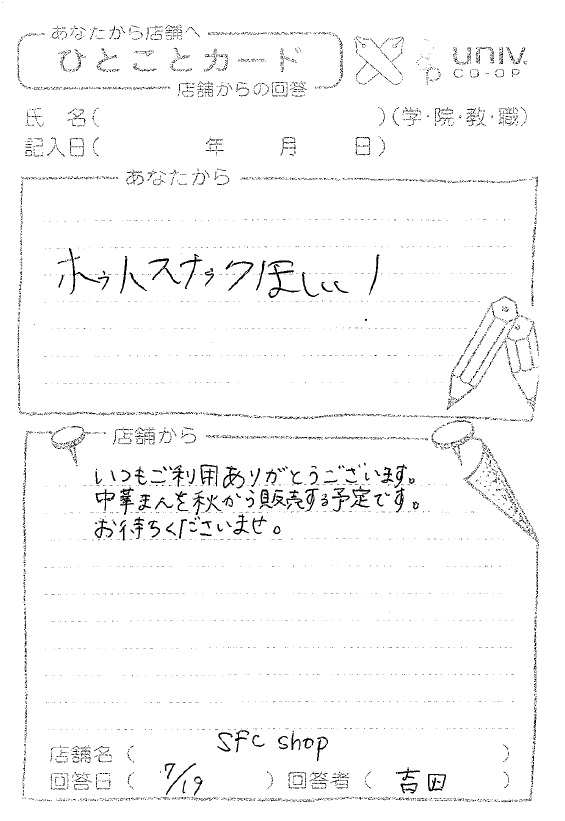 あなたから店舗へ
ひとことカード
店舗からの回答
univ.
CO-OP
氏 名( )(学・院・教・職)
記入日( 年 月 日)
あなたから
ホットスナックほしい!
店舗から
いつもご利用ありがとうございます。
中華まんを秋から販売する予定です。
お待ちくださいませ。
店舗名( SFC shop )
回答日( 7/19 ) 回答者( 吉田 )